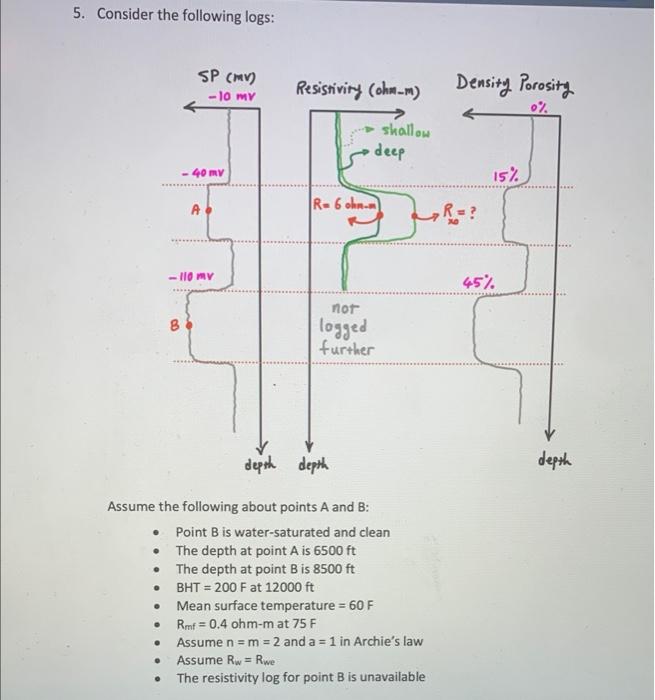 5. Consider the following logs:
SP (mv)
-10 mv
Resistivity (ohm-m)
Density Porosity
0%
shallow
deep
-40 mv
15%
A
R= 6 ohm-m
Rxo = ?
-110 mv
45%
B
not
logged
further
depth
depth
depth
Assume the following about points A and B:
• Point B is water-saturated and clean
• The depth at point A is 6500 ft
• The depth at point B is 8500 ft
• BHT = 200 F at 12000 ft
• Mean surface temperature = 60 F
• Rmf = 0.4 ohm-m at 75 F
• Assume n = m = 2 and a = 1 in Archie's law
• Assume Rw = Rwe
• The resistivity log for point B is unavailable